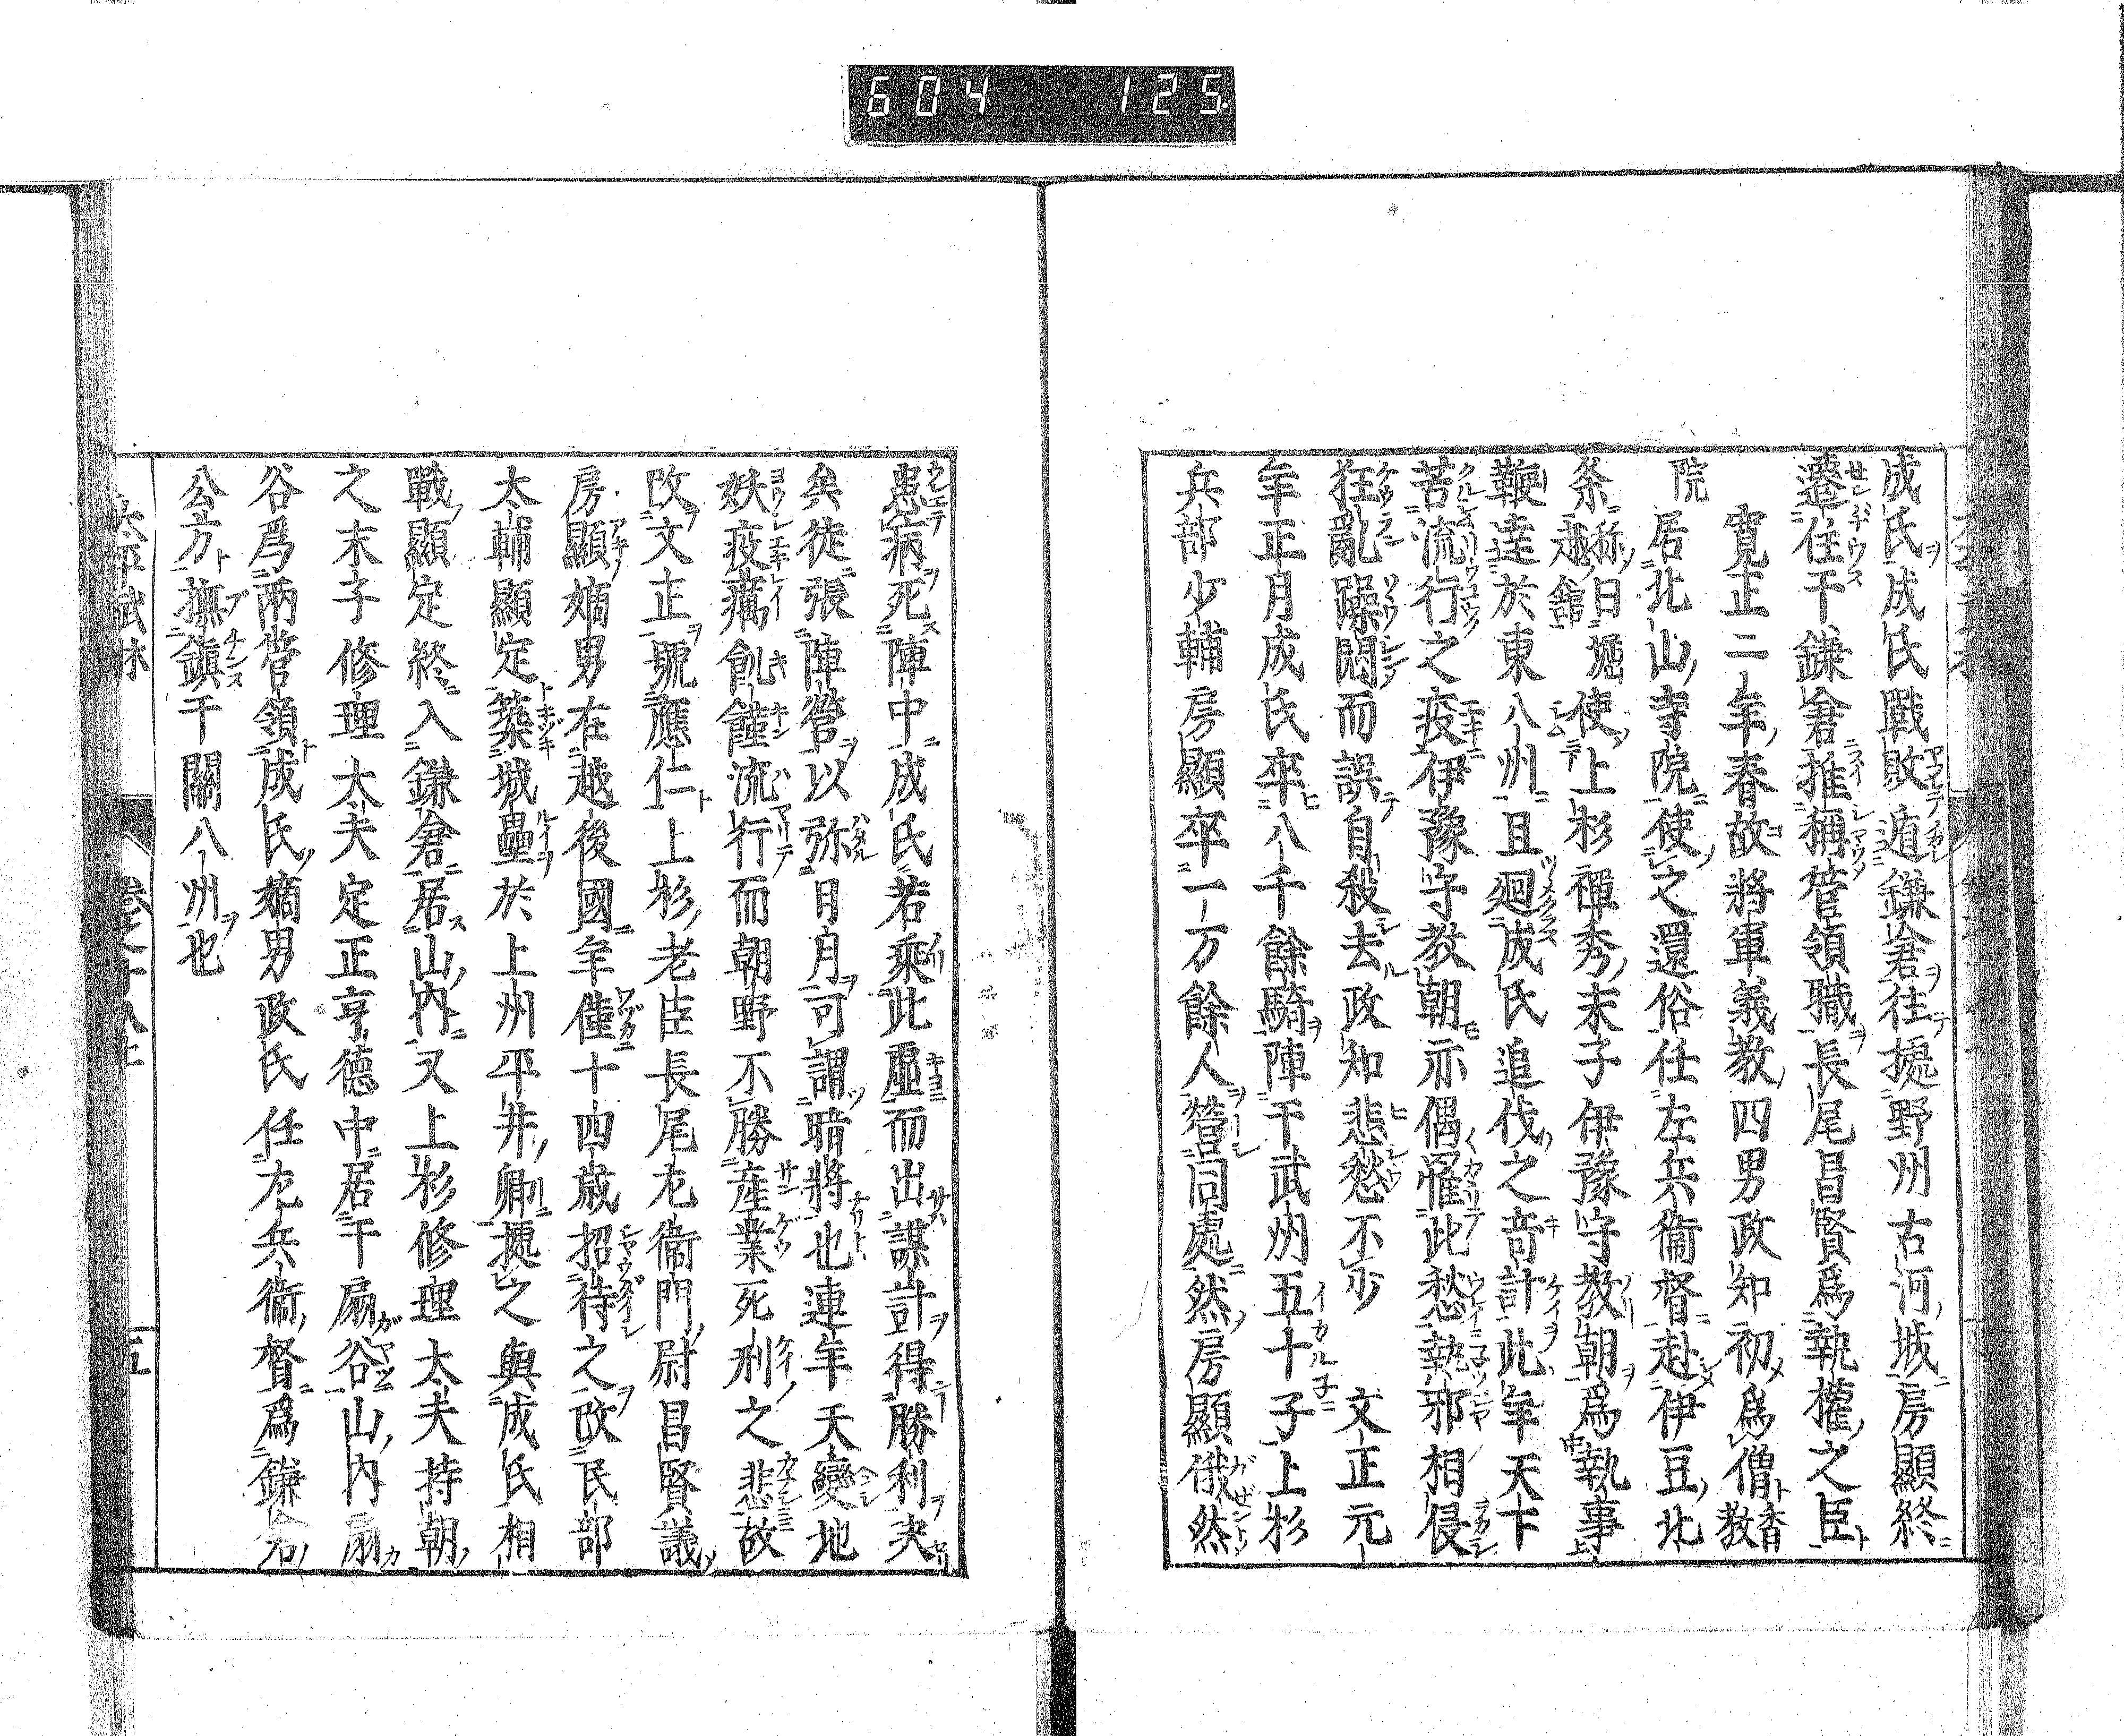 604 125
成氏成氏戰敗遁鎌倉徃㨿野州古河城房顯終
遷住于鎌倉推稱管領職長尾昌賢爲執權之臣
寛正二年春故將軍義教四男政知初爲僧香教
院居北山寺院使之還俗任左兵衞督赴伊豆北
条称越舘曰堀使上杉禪秀末子伊豫守教朝爲執事
鞭達於東八州且廻成氏追伐之竒計此年天下
苦流行之疫伊豫守教朝亦偶罹此愁執邪相侵
狂亂躁悶而誤自殺去政知悲愁不少 文正元
年正月成氏卒八千餘騎陣于武州五十子上杉
兵部少輔房顯卒一万餘人營同處然房顯俄然
患病死陣中成氏若乘此虛而出謀計得勝利夫
矣徒張陣營以弥日月可謂暗將也連年天變地
妖疫癘飢饉流行而朝野不勝產業死刑之悲故
改文正號應仁上杉老臣長尾左衞門尉昌賢議
房顯嫡男在越後國年僅十四歲招待之改民部
太輔顯定築城壘於上州平井卿㨿之與成氏相
戰顯定終入鎌倉居山內又上杉修理太夫持朝
之末子修理大夫定正亨德中居于扇谷山內扇
谷爲兩管領成氏嫡男政氏任左兵衞督爲鎌倉
公方撫鎭于關八州也
卷之十八上
五